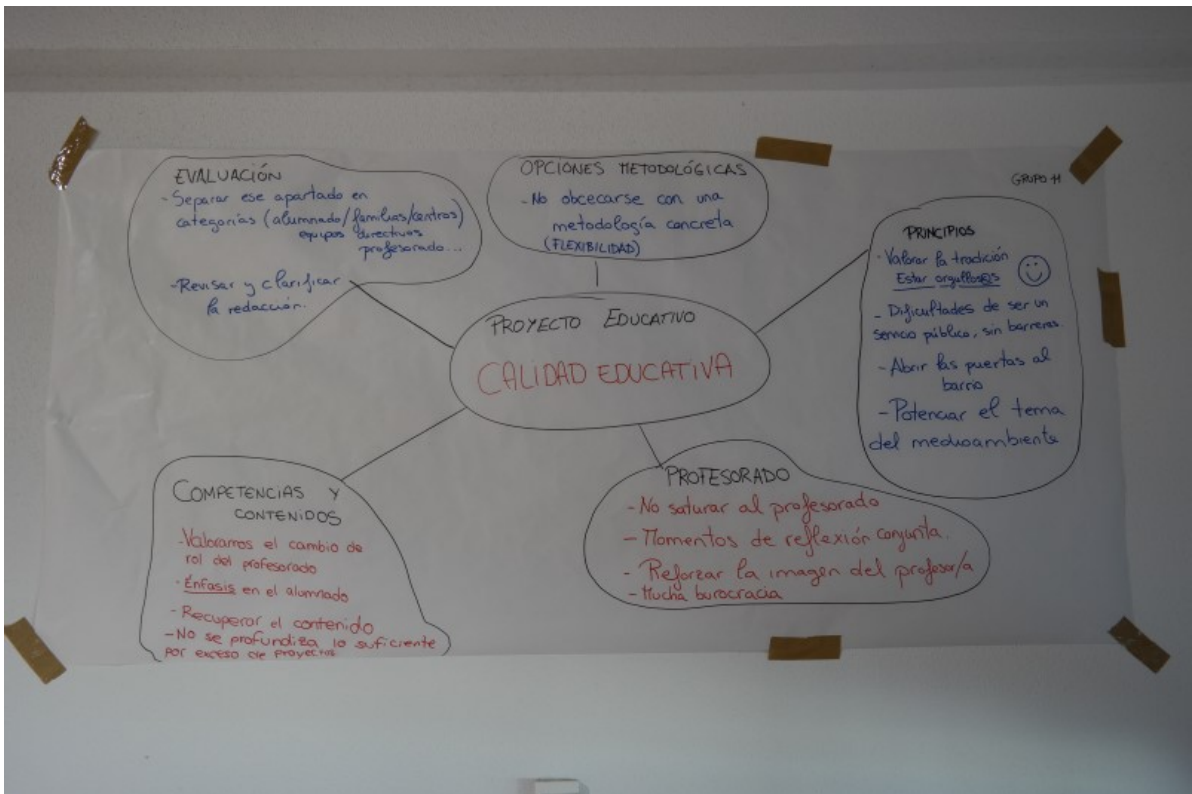 GRUPO 11
EVALUACIÓN
- Separar ese apartado en
categorías (alumnado/familias/centros)
equipos directivos
profesorado...
- Revisar y clarificar
la redacción.
OPCIONES METODOLÓGICAS
- No obcecarse con una
metodología concreta
(FLEXIBILIDAD)
PRINCIPIOS
- Valorar la tradición
Estar orgullos@s
- Dificultades de ser un
servicio público, sin barreras.
- Abrir las puertas al
barrio
- Potenciar el tema
del medioambiente
PROYECTO EDUCATIVO
CALIDAD EDUCATIVA
COMPETENCIAS Y
CONTENIDOS
- Valoramos el cambio de
rol del profesorado
- Énfasis en el alumnado
- Recuperar el contenido
- No se profundiza lo suficiente
por exceso de proyectos
PROFESORADO
- No saturar al profesorado
- Momentos de reflexión conjunta.
- Reforzar la imagen del profesor/a
- Mucha burocracia